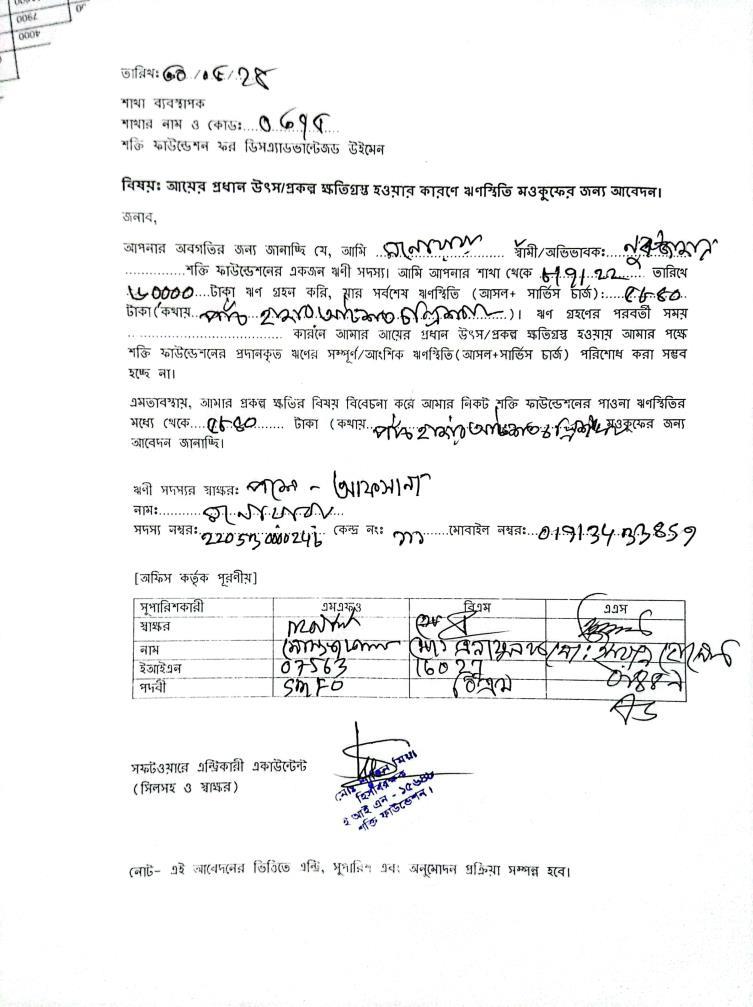 0067
7900
4000
তারিখ:
শাখা ব্যবস্থাপক
শাখার নাম ও কোড:....0695....
শক্তি ফাউন্ডেশন ফর ডিসএ্যাডভান্টেজড উইমেন
বিষয়: আয়ের প্রধান উৎস/প্রকল্প ক্ষতিগ্রস্থ হওয়ার কারণে ঋণস্থিতি মওকুফের জন্য আবেদন।
জনাব,
আপনার অবগতির জন্য জানাচ্ছি যে, আমি ...মনোয়ারা... স্বামী/অভিভাবক:
................শক্তি ফাউন্ডেশনের একজন ঋণী সদস্য। আমি আপনার শাখা থেকে ...... তারিখে
....টাকা ঋণ গ্রহন করি, যার সর্বশেষ ঋণস্থিতি (আসল+ সার্ভিস চার্জ):....৫৮৪০
টাকা(কথায়..পাঁচ হাজার আটশত চল্লিশ...)। ঋণ গ্রহণের পরবর্তী সময়
................................ কারনে আমার আয়ের প্রধান উৎস/প্রকল্প ক্ষতিগ্রস্থ হওয়ায় আমার পক্ষে
শক্তি ফাউন্ডেশনের প্রদানকৃত ঋণের সম্পূর্ণ/আংশিক ঋণস্থিতি(আসল+সার্ভিস চার্জ) পরিশোধ করা সম্ভব
হচ্ছে না।
এমতাবস্থায়, আমার প্রকল্প ক্ষতির বিষয় বিবেচনা করে আমার নিকট শক্তি ফাউন্ডেশনের পাওনা ঋণস্থিতির
মধ্যে থেকে....৫৮৪০........ টাকা (কথায়..পাঁচ হাজার আটশত চল্লিশ মওকুফের জন্য
আবেদন জানাচ্ছি।
ঋণী সদস্যর স্বাক্ষর: - আফসানা
নাম:...মনোয়ারা...
সদস্য নম্বর: কেন্দ্র নং: ৭৭ .......মোবাইল নম্বর:..
[অফিস কর্তৃক পূরণীয়]
সুপারিশকারী এমএফও বিএম এএস
স্বাক্ষর
নাম
ইআইএন 07563 16027
পদবী SMFO বিএম
AS
সফটওয়ারে এন্ট্রিকারী একাউন্টেন্ট
(সিলসহ ও স্বাক্ষর)
হিসাবরক্ষক
ই আই এন - ১৫৬৪৮
শক্তি ফাউন্ডেশন।
নোট- এই আবেদনের ভিত্তিতে এন্ট্রি, সুপারিশ এবং অনুমোদন প্রক্রিয়া সম্পন্ন হবে।